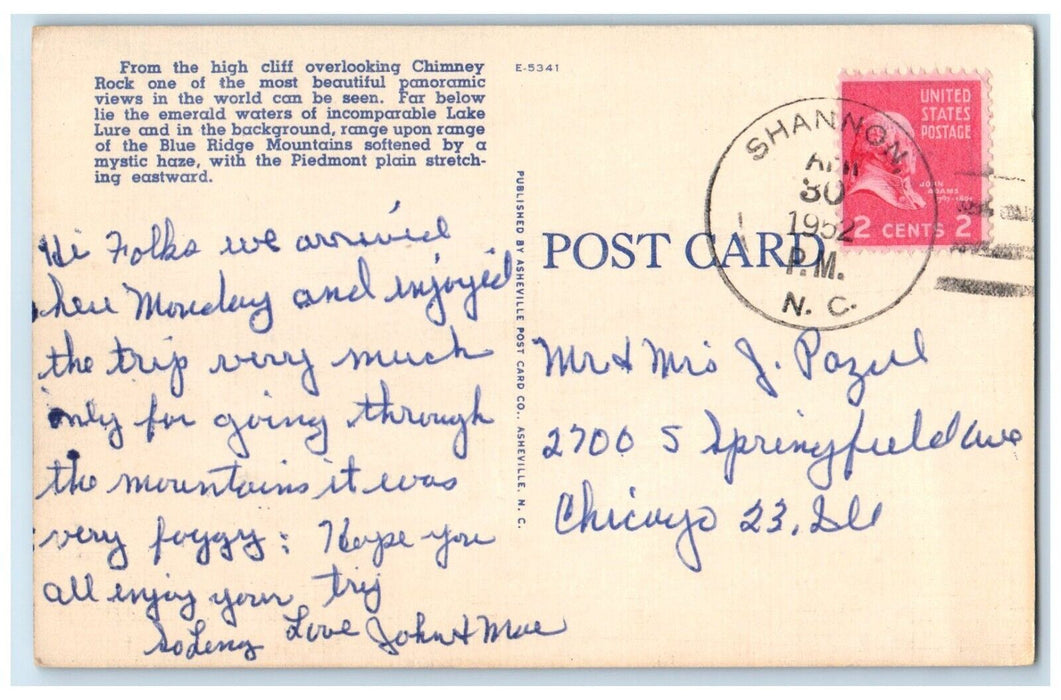 From the high cliff overlooking Chimney
Rock one of the most beautiful panoramic
views in the world can be seen. Far below
lie the emerald waters of incomparable Lake
Lure and in the background, range upon range
of the Blue Ridge Mountains softened by a
mystic haze, with the Piedmont plain stretch-
ing eastward.
E-5341
Hi Folks we arrived
here Monday and enjoyed
the trip very much
only for going through
the mountains it was
very foggy: Hope you
all enjoy your trip
So Long Love John & Mae
PUBLISHED BY ASHEVILLE POST CARD CO., ASHEVILLE, N. C.
POST CARD
SHANNON,
APR
30
1952
P.M.
N. C.
UNITED
STATES
POSTAGE
JOHN
ADAMS
2 CENTS 2
Mr & Mrs J. Pazul
2700 S Springfield Ave
Chicago 23, Ill